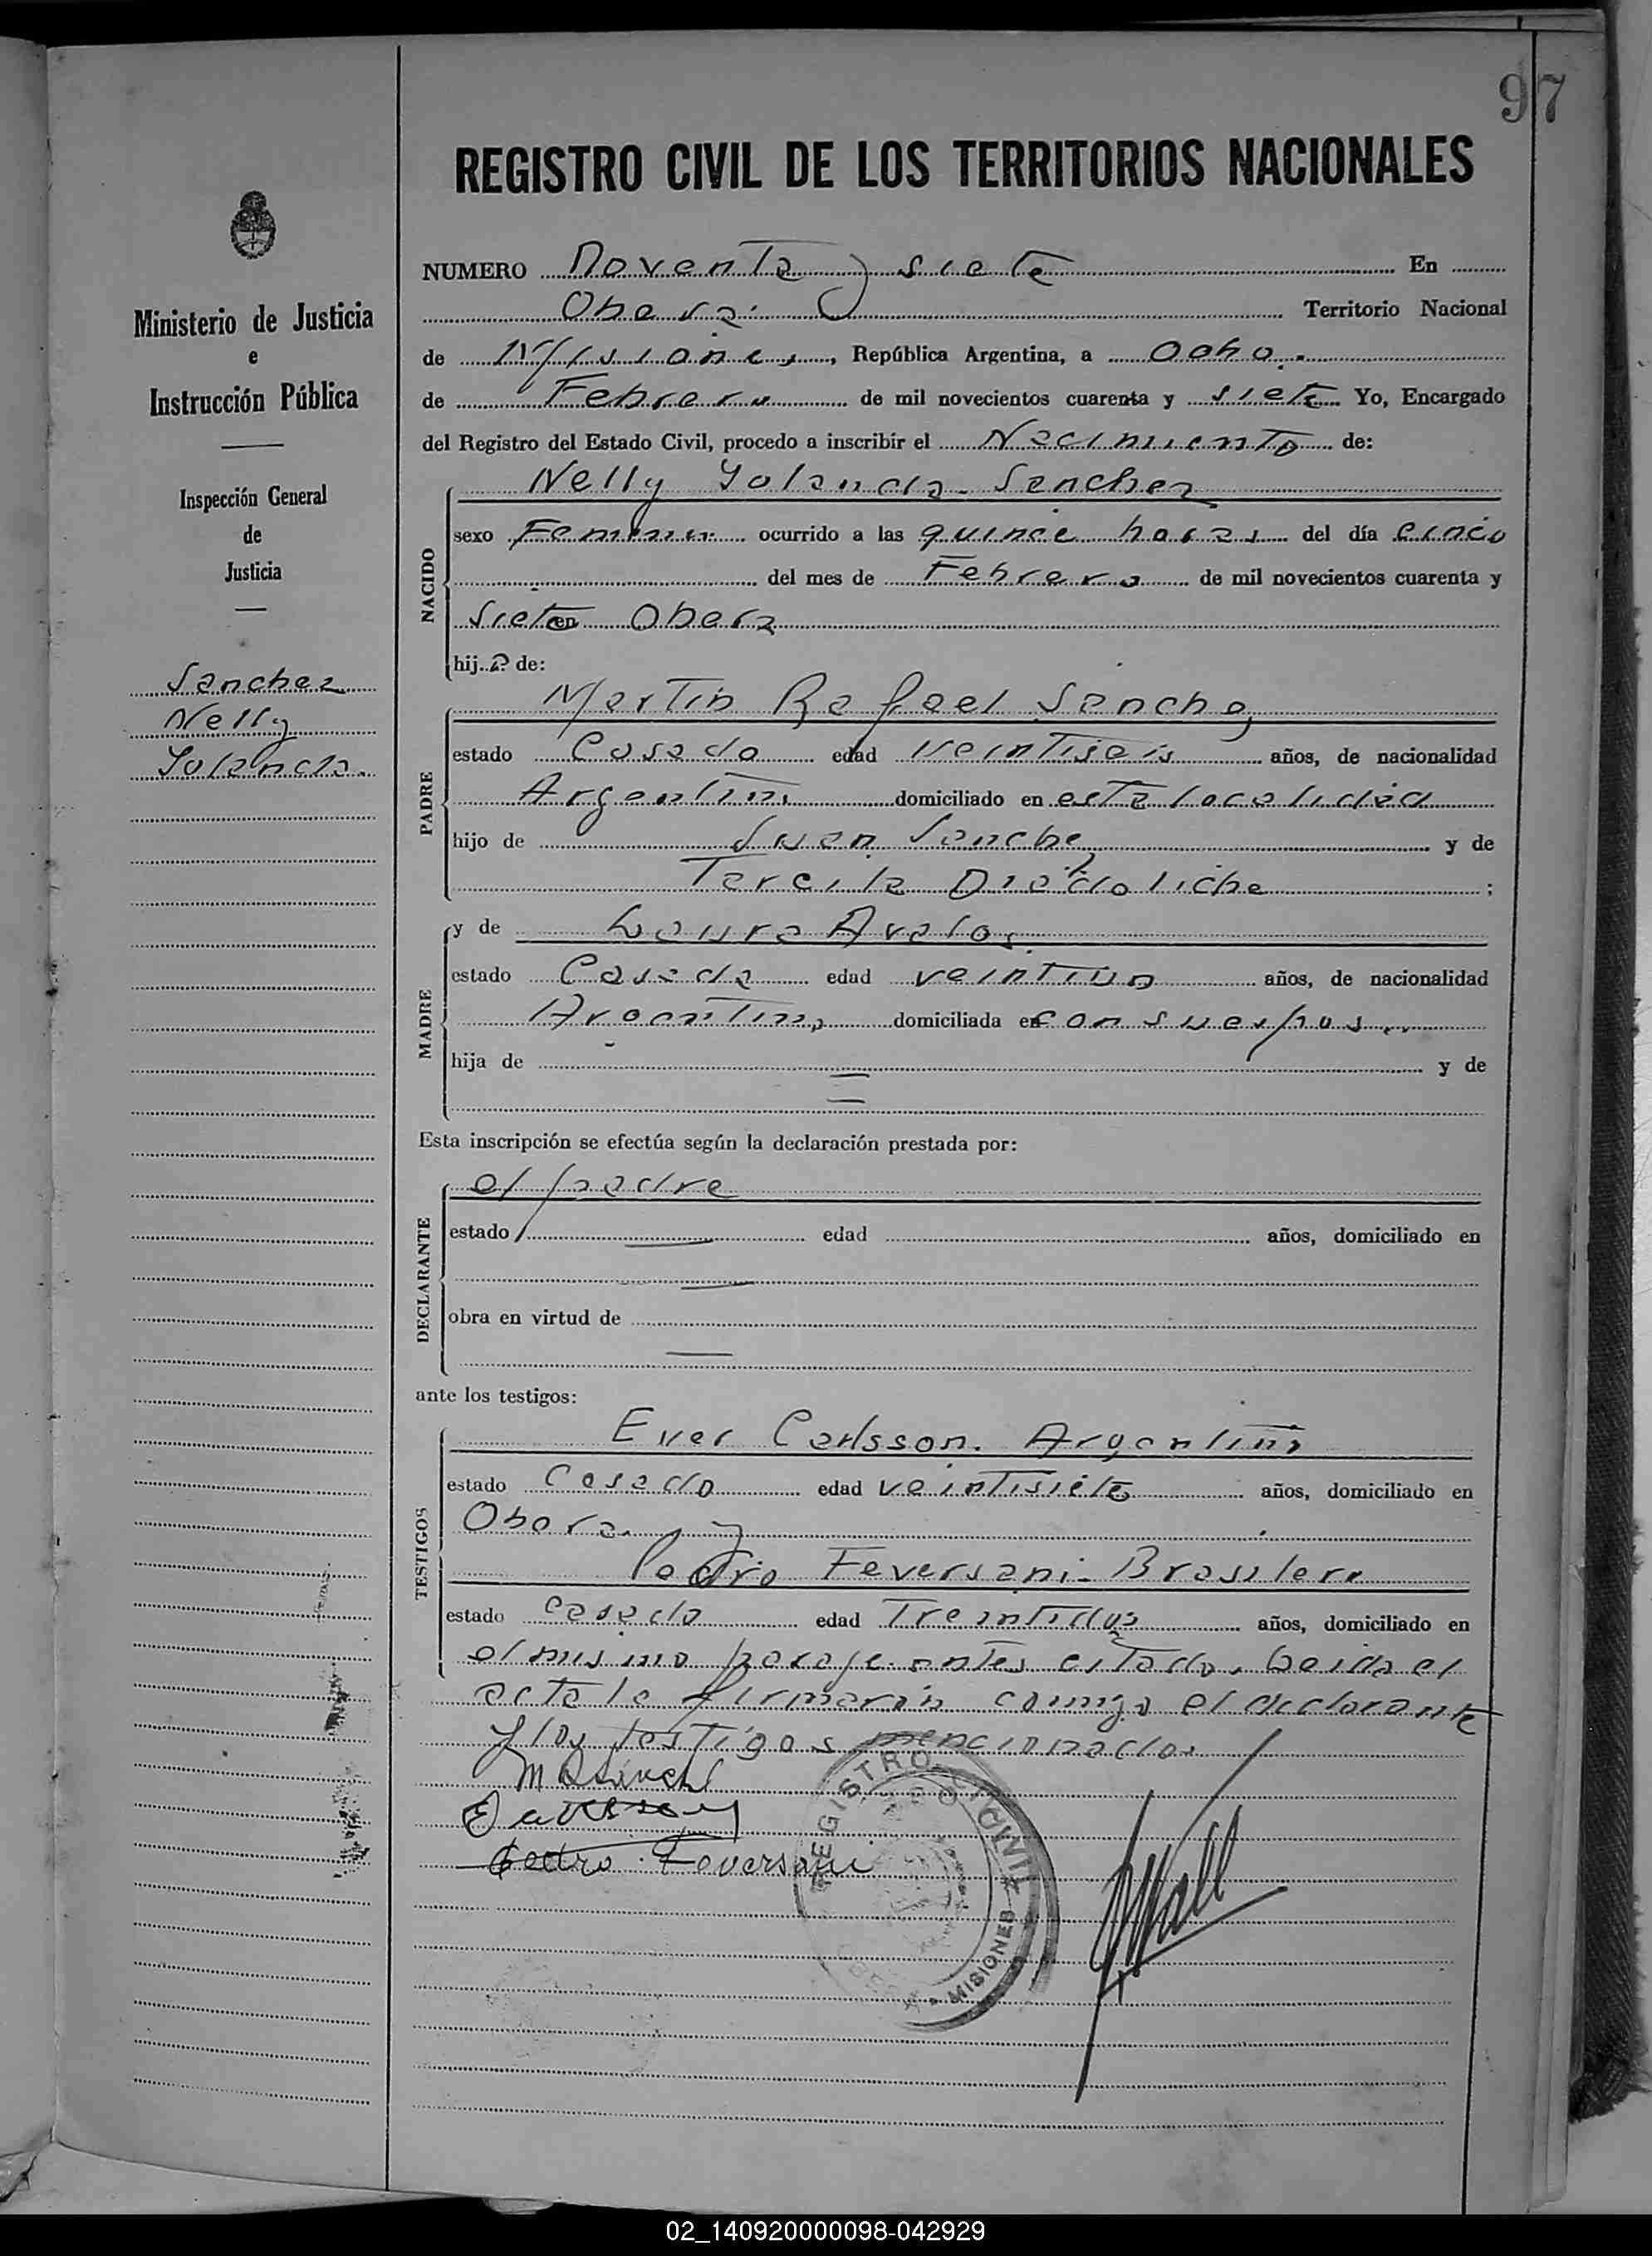 97
REGISTRO CIVIL DE LOS TERRITORIOS NACIONALES
Ministerio de Justicia
e
Instrucción Pública
Inspección General
de
Justicia
Sanchez
Nelly
Yolanda.
NUMERO Noventa y siete En
Obera. Territorio Nacional
de Misiones, República Argentina, a Ocho.
de Febrero de mil novecientos cuarenta y siete Yo, Encargado
del Registro del Estado Civil, procedo a inscribir el Nacimiento de:
NACIDO
Nelly Yolanda Sanchez
sexo Femenin ocurrido a las quince horas del día cinco
del mes de Febrero de mil novecientos cuarenta y
Siete en Obera
hij a de:
PADRE
Martin Rafael Sanchez
estado Casado edad veintiseis años, de nacionalidad
Argentino domiciliado en esta localidad
hijo de Juan Sanchez y de
Tarcila ;
MADRE
y de Laura Avalos
estado Casada edad veintiun años, de nacionalidad
Argentina domiciliada en con su esposo.
hija de = y de
=
Esta inscripción se efectúa según la declaración prestada por:
DECLARANTE
el padre
estado edad años, domiciliado en
obra en virtud de
ante los testigos:
TESTIGOS
Ever Carlsson. Argentino
estado Casado edad veintisiete años, domiciliado en
Obera. y
Pedro Feversani. Brasilero
estado casado edad Treintidos años, domiciliado en
el mismo paraje antes citado. Leida el
acta la firmaron conmigo el declarante
y los testigos mencionados
Pedro Feversani
REGISTRO CIVIL
MISIONES
02_140920000098-042929